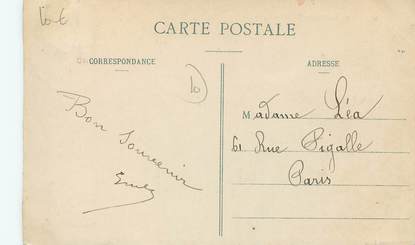 10 €
CARTE POSTALE
CORRESPONDANCE
ADRESSE
10
Madame Léa
61 Rue Pigalle
Paris
Bon Souvenir